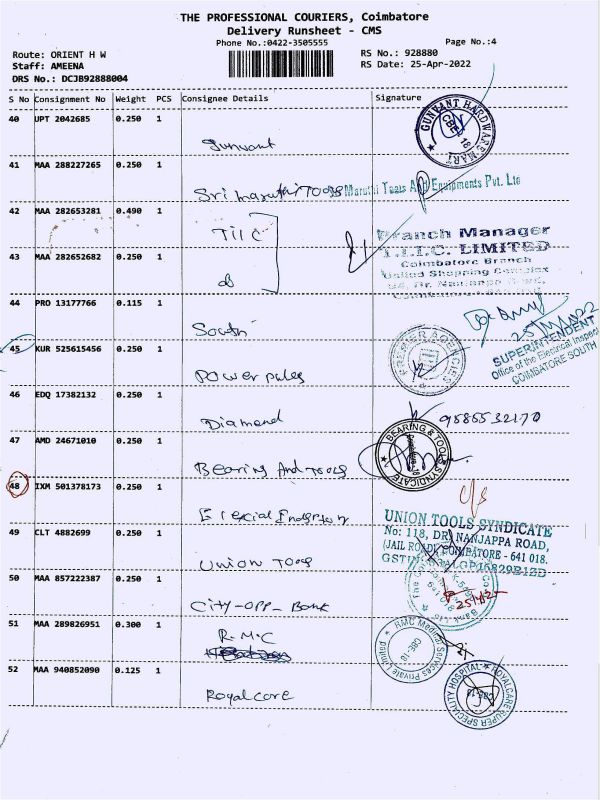 THE PROFESSIONAL COURIERS, Coimbatore
Delivery Runsheet - CMS
Phone No.:0422-3505555
Page No.:4
Route: ORIENT H W
RS No.: 928880
Staff: AMEENA
RS Date: 25-Apr-2022
DRS No.: DCJB92888004
S No Consignment No Weight PCS Consignee Details Signature
40 UPT 2042685 0.250 1
Gunvant
GUNVANT HARDWARE MART
CBE 18
41 MAA 288227265 0.250 1
Sri Maruthi Tools
Maruthi Tools And Equipments Pvt. Ltd
42 MAA 282653281 0.490 1
TIIC
Branch Manager
T.I.I.C. LIMITED
Coimbatore Branch
United Shopping Complex
43 MAA 282652682 0.250 1
44 PRO 13177766 0.115 1
South
SUPERINTENDENT
Office of the Electrical Inspect
COIMBATORE SOUTH
45 KUR 525615456 0.250 1
PREMIER AGENCIES
Power pules
46 EDQ 17382132 0.250 1
Diamond
9585532170
47 AMD 24671010 0.250 1
Bearing And Tools
BEARING & TOOLS SYNDICATE
48 IXM 501378173 0.250 1
c/s
49 CLT 4882699 0.250 1
Union Tools
UNION TOOLS SYNDICATE
No: 118, DR. NANJAPPA ROAD,
(JAIL ROAD) COIMBATORE - 641 018.
50 MAA 857222387 0.250 1
City-opp-Bank
51 MAA 289826951 0.300 1
R.M.C
RMC Medical Services Private Limited
CBE-18
52 MAA 940852090 0.125 1
Royalcare
ROYALCARE SUPER SPECIALITY HOSPITAL